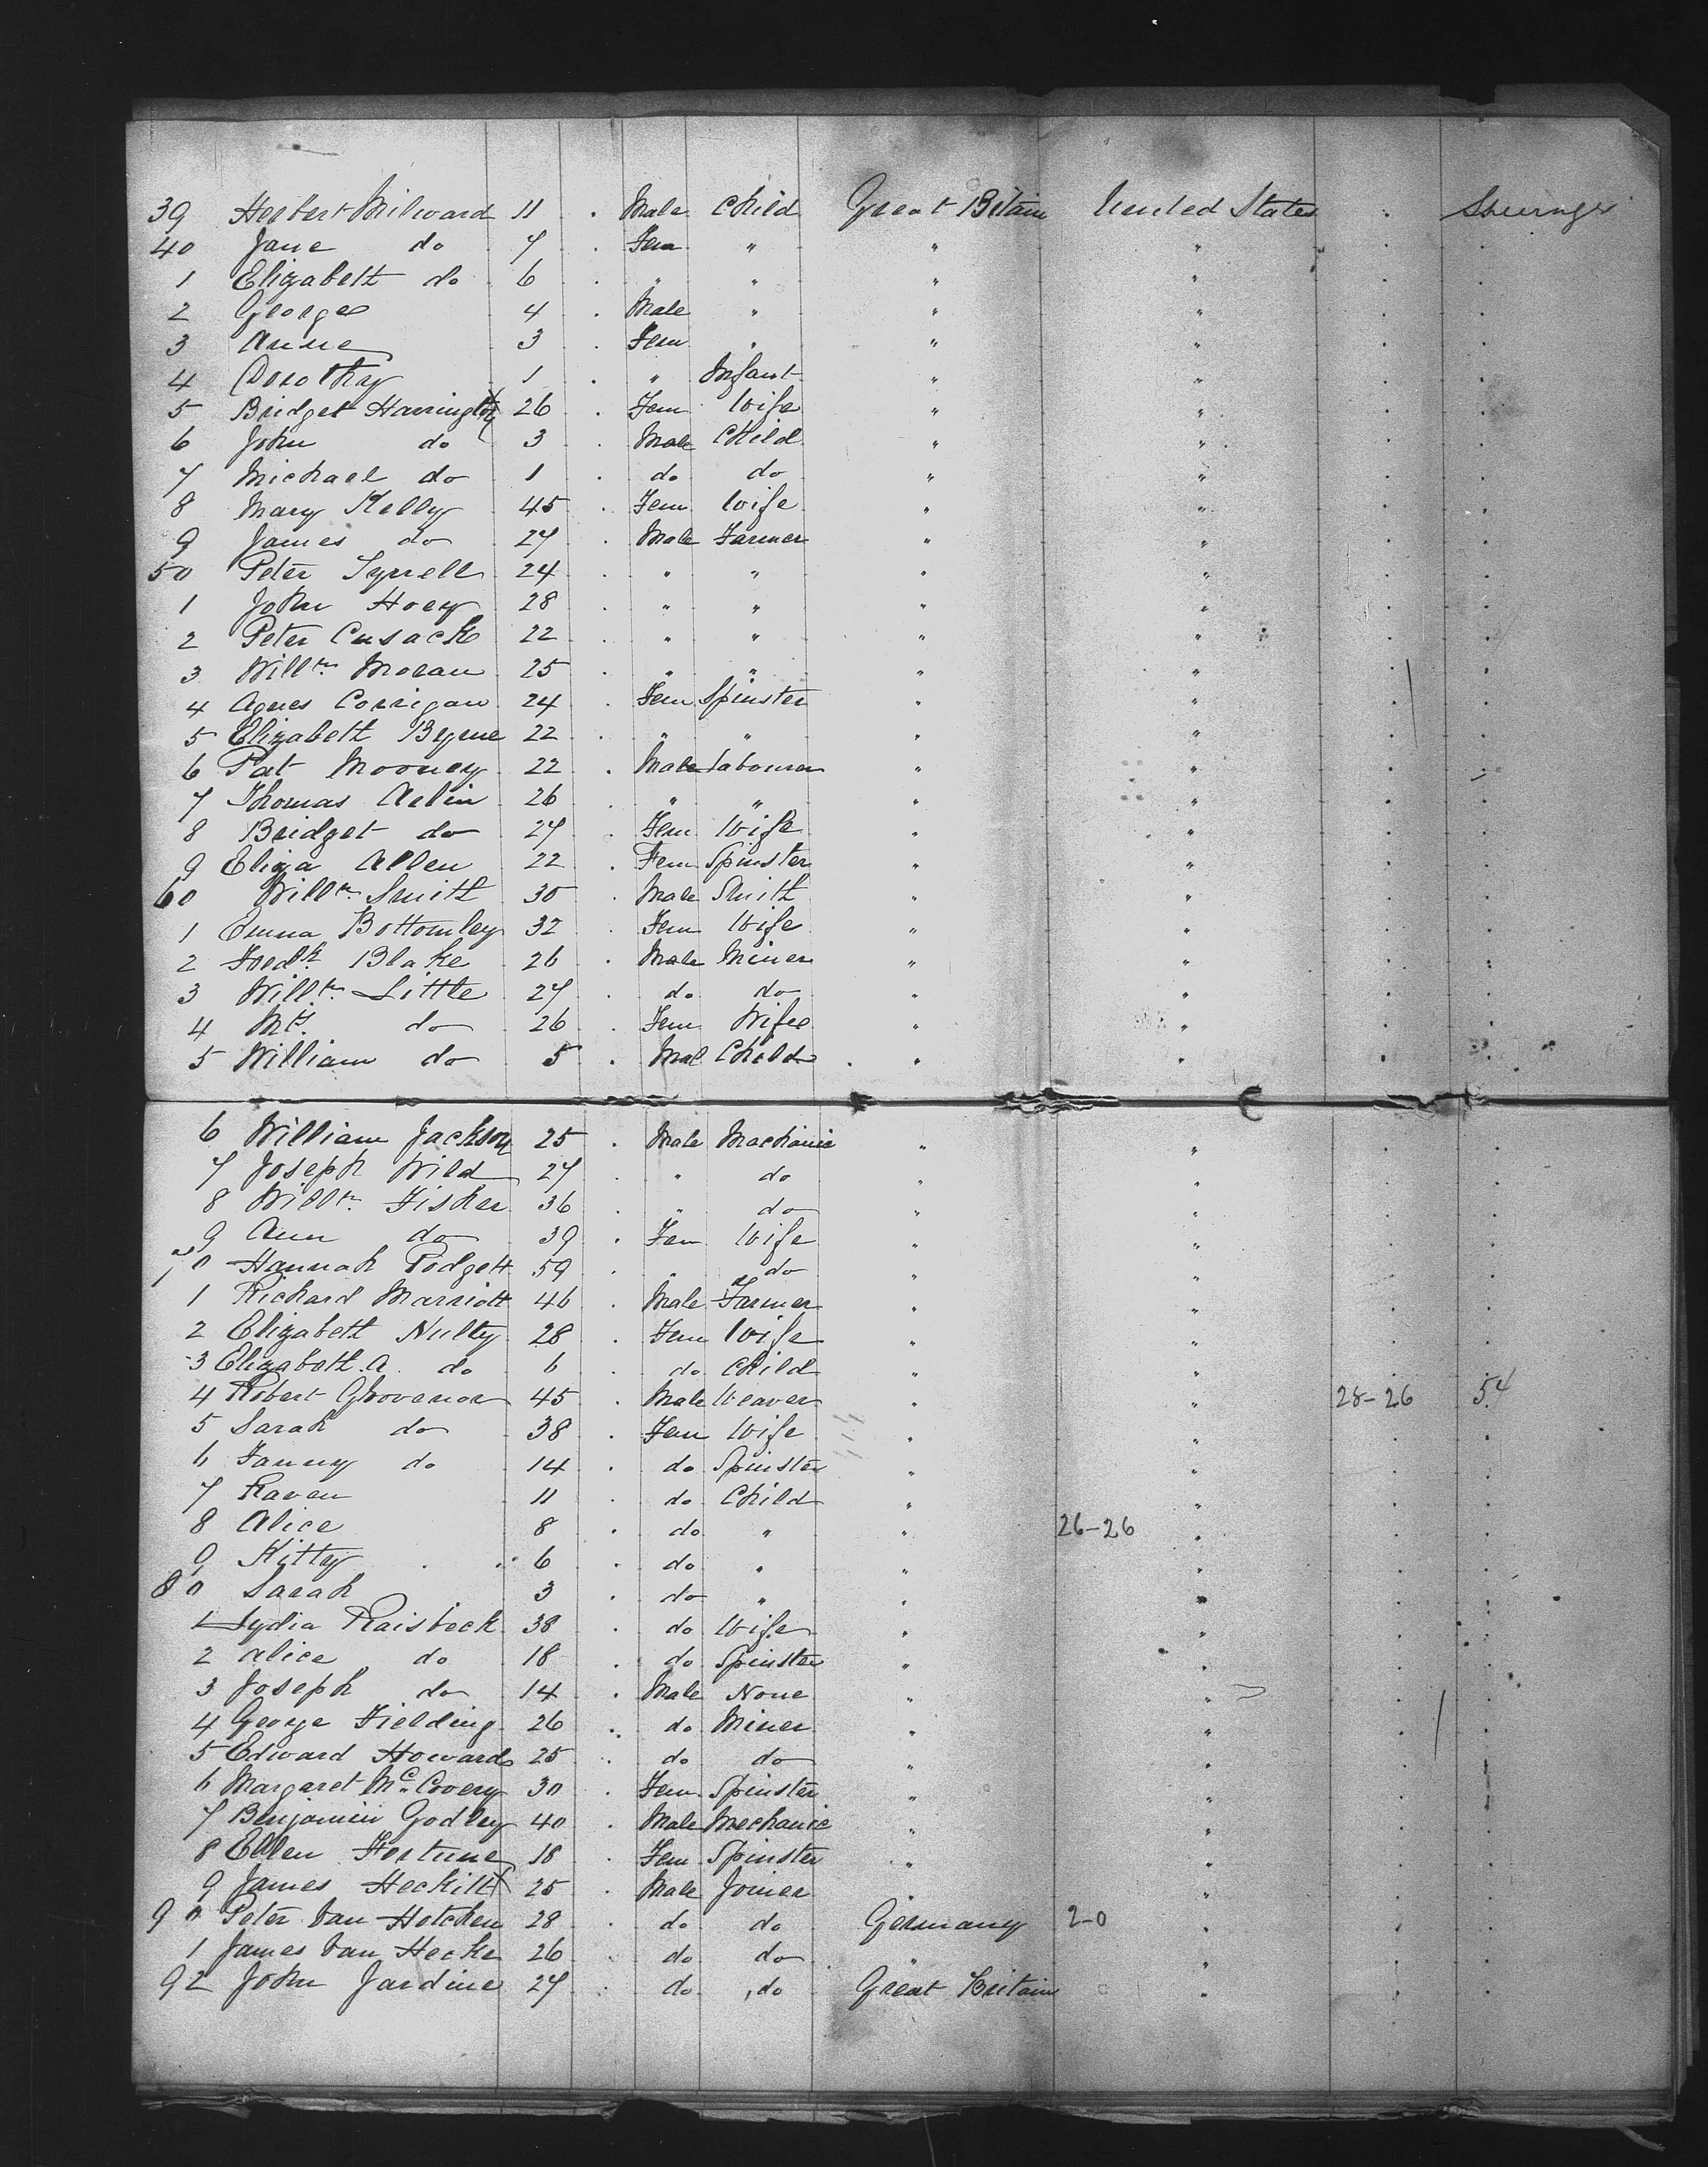 39 Herbert Milward 11 . Male Child Great Britain United States . Steerage
40 Jane do 7 . Fem " " " . .
1 Elizabeth do 6 . " " " " . .
2 George 4 . Male " " " . .
3 Anne 3 . Fem " " " . .
4 Dorothy 1 . " Infant " " . .
5 Bridget Harrington 26 . Fem Wife " " . .
6 John do 3 . Male Child " " . .
7 Michael do 1 . do do " " . .
8 Mary Kelly 45 . Fem Wife " " . .
9 James do 27 . Male Farmer " " . .
50 Peter Tyrrell 24 . " " " " . .
1 John Hoey 28 . " " " " . .
2 Peter Cusack 22 . " " " " . .
3 Willm Moran 25 . " " " " . .
4 Agnes Corrigan 24 . Fem Spinster " " . .
5 Elizabeth Byrne 22 . " " " " . .
6 Pat Mooney 22 . Male Labourer " " . .
7 Thomas 26 . " " " " . .
8 Bridget do 27 . Fem Wife " " . .
9 Eliza Allen 22 . Fem Spinster " " . .
60 Willm Smith 30 . Male Smith " " . .
1 Emma Bottomley 32 . Fem Wife " " . .
2 Fredk Blake 26 . Male Miner " " . .
3 Willm Little 27 . do do " " . .
4 Mrs. do 26 . Fem Wife " " . .
5 William do 5 . Mal Child " " . .
6 William Jackson 25 . Male Machanic " " . .
7 Joseph Wild 27 . " do " " . .
8 Willm Fisher 36 . " do " " . .
9 Ann do 39 . Fem Wife " " . .
70 Hannah Podgett 59 . " do " " . .
1 Richard Marriott 46 . Male Farmer " " . .
2 Elizabeth Nulty 28 . Fem Wife " " . .
3 Elizabeth A. do 6 . do Child " " . .
4 Robert 45 . Male Weaver " " 28-26 54
5 Sarah do 38 . Fem Wife " " . .
6 Fanny do 14 . do Spinster " " . .
7 Raven 11 . do Child " " . .
8 Alice 8 . do " " 26-26 " . .
9 Kitty 6 . do " " " . .
80 Sarah 3 . do " " " . .
1 Lydia Raisbeck 38 . do Wife " " . .
2 Alice do 18 . do Spinster " " . .
3 Joseph do 14 . Male None " " . .
4 George Fielding 26 . do Miner " " . .
5 Edward Howard 25 . do do " " . .
6 Margaret McCovery 30 . Fem Spinster " " . .
7 Benjamin Godley 40 . Male Mechanic " " . .
8 Ellen Fortune 18 . Fem Spinster " " . .
9 James 25 . Male Joiner " " . .
90 Peter Van Hotchen 28 . do do Germany 2-0 " . .
1 James Van Hecke 26 . do do " " . .
92 John Jardine 27 . do do Great Britain " . .